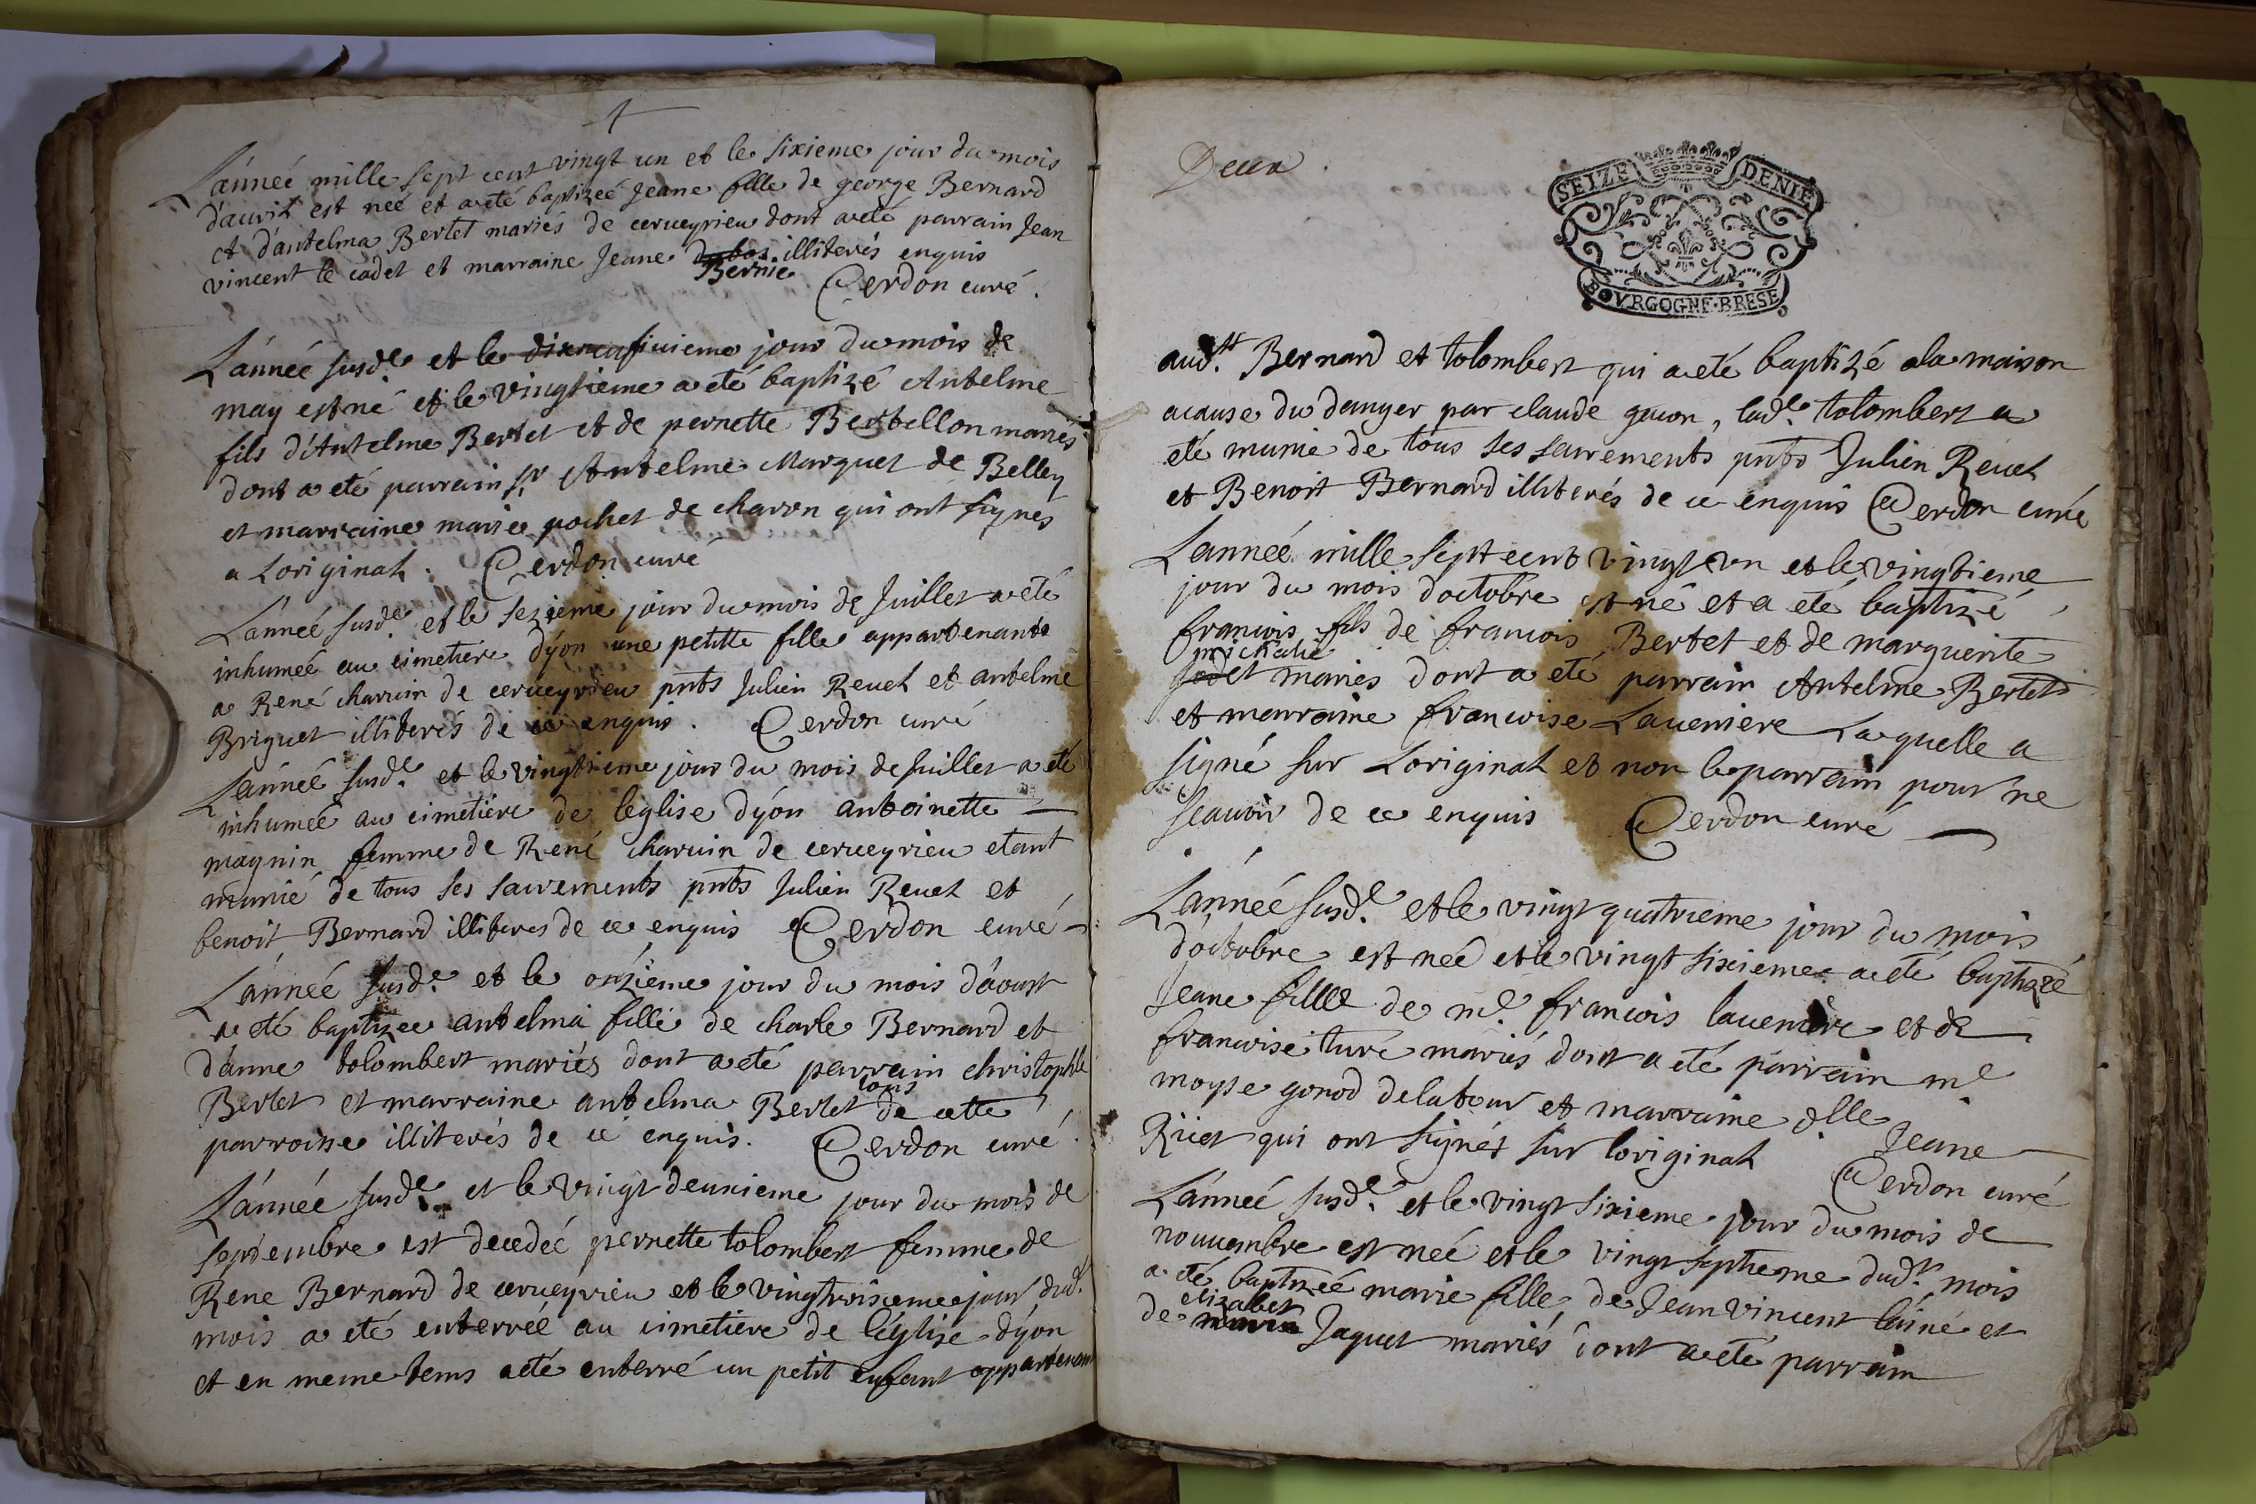 Lánneé mille sept cent vingt un et le sixieme jour du mois
d'auril est neé et a eté baptizeé Jeane fille de george Bernard
et d'antelma Bertet mariés de cerueyrieu dont a eté parrain Jean
vincent le cadet et marraine Jeane Bernie illiterés enquis
Cerdon curé.
Lánneé susde et le dixneufuieme jour du mois de
may est né et le vingtieme a eté baptizé Antelme
fils d'Antelme Bertet et de pernette Berthellon mariés
dont a eté parrain sr Antelme Marquet de Belley
et marraine marie pochet de charon qui ont signés
a Loriginal. Cerdon curé
Lánneé susde. et le sezieme jour du mois de Juillet a eté
inhumeé au cimetiere dýon une petitte fille appartenante
a René charuin de cerueyrieu pnts Julien Reuel et antelme
Briguet illiterés de ce enquis. Cerdon curé
Lánneé susde. et le vingtrieme jour du mois de Juillet a eté
inhumeé au cimetiére de leglise dýon antoinette
magnin femme de René charuin de cerueyrieu etant
munie de tous ses sacrements pnts Julien Reuel et
benoit Bernard illiteres de ce enquis Cerdon curé
Lánneé susde. et le onzieme jour du mois dáoust
a eté baptizee antelma fille de charle Bernard et
dánne tolombert mariés dont a eté parrain christophle
Bertet et marraine antelma Bertet tous de cette
parroisse illiterés de ce enquis. Cerdon curé
Lánneé susde. et le vingt deuxieme jour du mois de
septembre est decedeé pernette tolombert femme de
Rene Bernard de cerueyrieu et le vingtroisieme jour dud.
mois a eté enterreé au cimetiere de léglise dýon
et en meme tems a eté enterré un petit enfant appartenant
Deux
SEIZE DENIE
BOVRGOGNE·BRESE
audts. Bernard et tolombert qui a eté baptizé a la maison
acause du danger par claude guion, lade. tolombert a
eté munie de tous ses sacrements pnts Julien Reuel
et Benoit Bernard illiterés de ce enquis Cerdon curé
Lanneé mille sept cent vingt vn et le vingtieme
jour du mois doctobre est né et a eté baptizé
francois fils de francois Bertet et de marguerite
michalie mariés dont a eté parrain Antelme Bertet
et marraine francoise Laueniere Laquelle a
signé sur Loriginal et non le parrain pour ne
scauoir de ce enquis Cerdon curé
Lánneé susde. et le vingt quatrieme jour du mois
d'octobre est neé et le vingt sixieme a eté baptizeé
Jeane fille de me francois laueniere et de
francoise turé mariés dont a eté parrain me
moyse gonod delatour et marraine dlle Jeane
Riet qui ont signés sur loriginal
Cerdon curé
Lánneé susde. et le vingt sixieme jour du mois de
nouuembre est neé et le vingt septieme dudt. mois
a eté baptizeé marie fille de Jean vincent láiné et
de elizabet Jaquet mariés dont a eté parrain